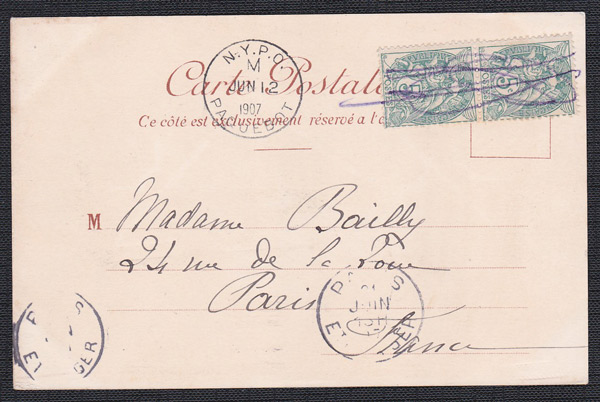 N.Y.P.O.
M
JUN 12
1907
PAQUEBOT
Carte Postale
Ce côté est exclusivement réservé a l'a
M Madame Bailly
24 rue de la Tour
Paris
France
PARIS
21
JUIN
ETRANGER